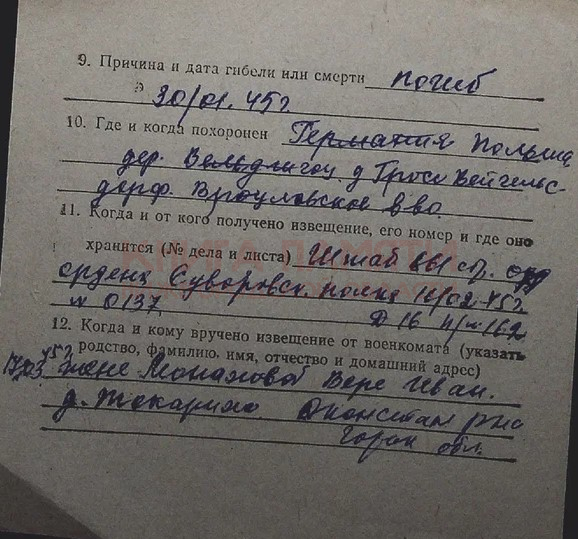 9. Причина и дата гибели или смерти погиб
30/01.45г
10. Где и когда похоронен Германия Польша
дер. Вельдлигоц д Гросс Вейгельс-
дорф. Вроцловское в-во.
11. Когда и от кого получено извещение, его номер и где оно
хранится (№ дела и листа) Штаб 861 стр.
ордена Суворовск. полка 16/02-45г.
№ 0137 Д 16 п/н 162
12. Когда и кому вручено извещение от военкомата (указать
родство, фамилию, имя, отчество и домашний адрес)
45г
17/03 жене Монаховой Вере Иван.
д. Токарихо
Горьк обл.
КНИГА ПАМЯТИ